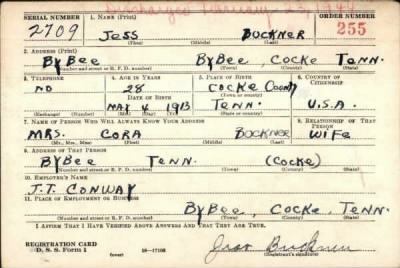 Discharged February 23, 1944
SERIAL NUMBER 1. NAME (Print) ORDER NUMBER
2709 Jess Buckner 255
(First) (Middle) (Last)
2. ADDRESS (Print)
ByBee ByBee, Cocke Tenn.
(Number and street or R. F. D. number) (Town) (County) (State)
3. TELEPHONE 4. AGE IN YEARS 5. PLACE OF BIRTH 6. COUNTRY OF CITIZENSHIP
NO 28 Cocke County
DATE OF BIRTH (Town or county)
MAY 4 1913 Tenn. U.S.A.
(Exchange) (Number) (Mo.) (Day) (Yr.) (State or country)
7. NAME OF PERSON WHO WILL ALWAYS KNOW YOUR ADDRESS 8. RELATIONSHIP OF THAT PERSON
MRS. CORA BUCKNER WIFE
(Mr., Mrs., Miss) (First) (Middle) (Last)
9. ADDRESS OF THAT PERSON
BYBee Tenn. (Cocke)
(Number and street or R. F. D. number) (Town) (County) (State)
10. EMPLOYER'S NAME
J.T. CONWAY
11. PLACE OF EMPLOYMENT OR BUSINESS
ByBee, Cocke, Tenn.
(Number and street or R. F. D. number) (Town) (County) (State)
I AFFIRM THAT I HAVE VERIFIED ABOVE ANSWERS AND THAT THEY ARE TRUE.
REGISTRATION CARD
D. S. S. Form 1 (over) 16—17105 Jess Buckner
(Registrant's signature)